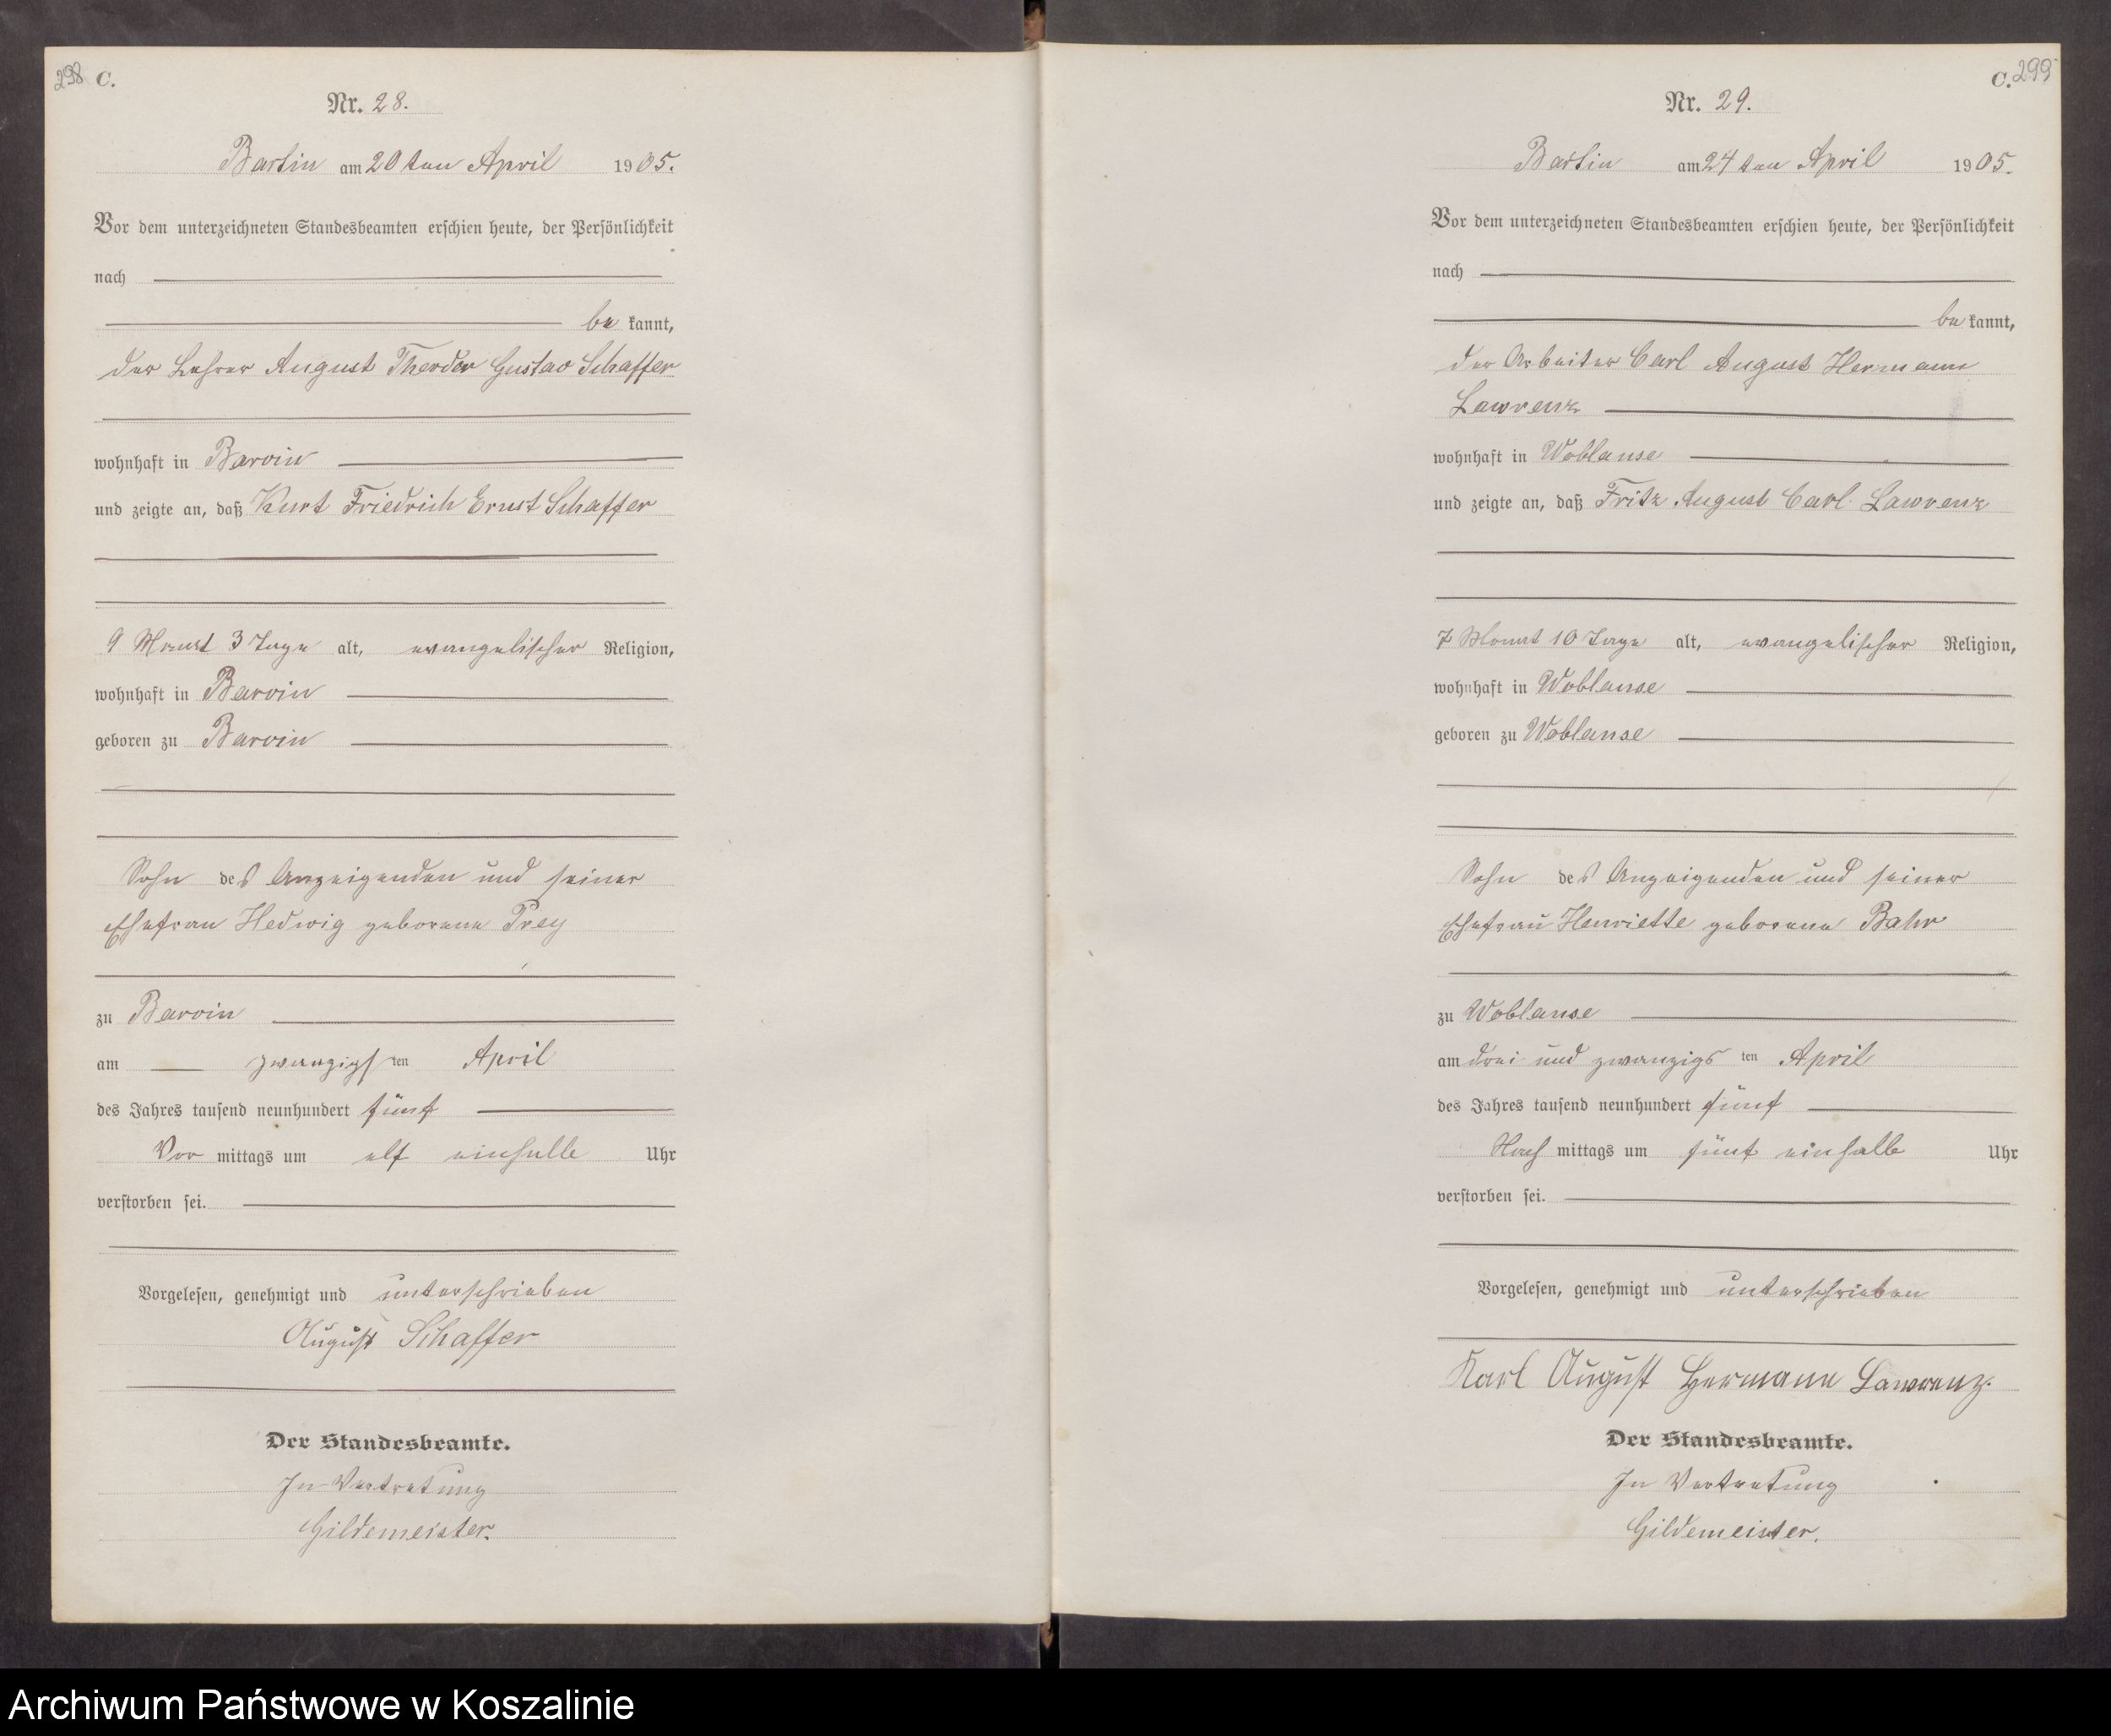 298 C.
Nr. 28.
Bartin am 20ten April 1905.
Vor dem unterzeichneten Standesbeamten erschien heute, der Persönlichkeit
nach
be kannt,
der Lehrer August Theodor Gustav Schaffer
wohnhaft in Barvin
und zeigte an, daß Kurt Friedrich Ernst Schaffer
9 Monat 3 Tage alt, evangelischer Religion,
wohnhaft in Barvin
geboren zu Barvin
Sohn des Anzeigenden und seiner
Ehefrau Hedwig geborene Prey
zu Barvin
am zwanzigsten April
des Jahres tausend neunhundert fünf
Vor mittags um elf einhalb Uhr
verstorben sei.
Vorgelesen, genehmigt und unterschrieben
August Schaffer
Der Standesbeamte.
In Vertretung
Gildemeister.
C. 299
Nr. 29.
Bartin am 24ten April 1905.
Vor dem unterzeichneten Standesbeamten erschien heute, der Persönlichkeit
nach
be kannt,
der Arbeiter Carl August Hermann
Lawrenz
wohnhaft in Woblanse
und zeigte an, daß Fritz August Carl Lawrenz
7 Monat 10 Tage alt, evangelischer Religion,
wohnhaft in Woblanse
geboren zu Woblanse
Sohn des Anzeigenden und seiner
Ehefrau Henriette geborene Bahr
zu Woblanse
am drei und zwanzigsten April
des Jahres tausend neunhundert fünf
Nach mittags um fünf einhalb Uhr
verstorben sei.
Vorgelesen, genehmigt und unterschrieben
Karl August Hermann Lawrenz.
Der Standesbeamte.
In Vertretung
Gildemeister.
Archiwum Państwowe w Koszalinie